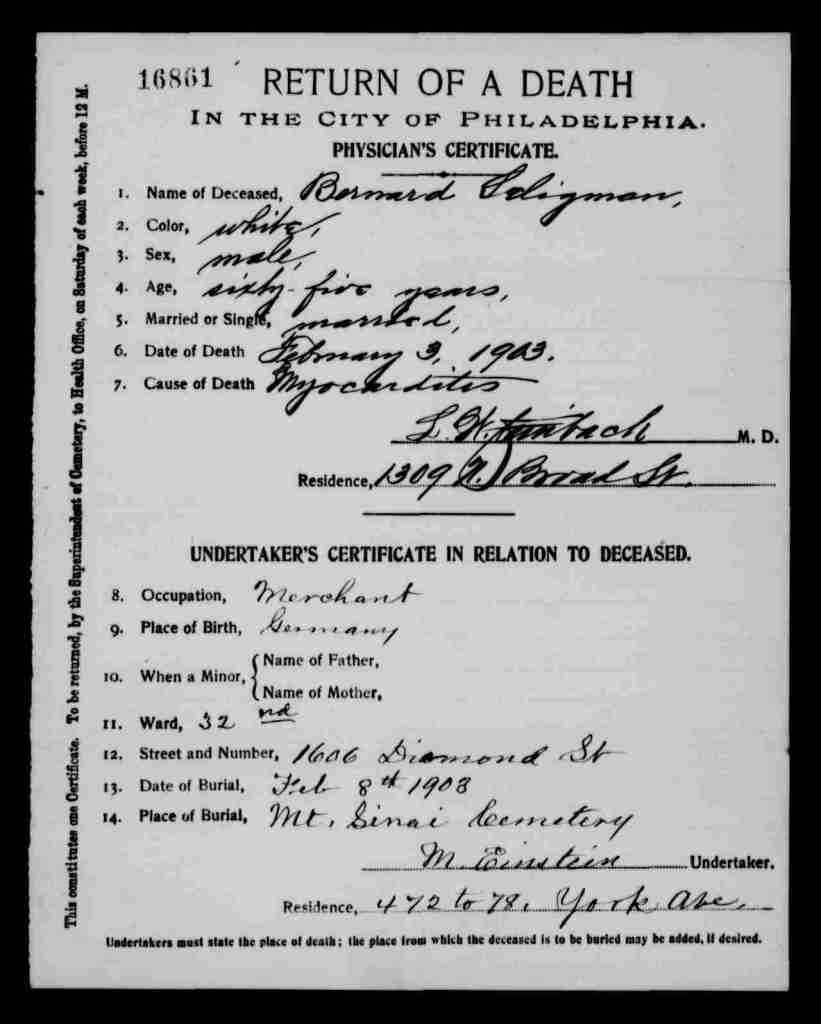 16861
RETURN OF A DEATH
IN THE CITY OF PHILADELPHIA.
PHYSICIAN'S CERTIFICATE.
1. Name of Deceased, Bernard Seligman,
2. Color, white,
3. Sex, male,
4. Age, sixty-five years,
5. Married or Single, married,
6. Date of Death February 3, 1903.
7. Cause of Death Myocarditis
L. W. Steinbach M. D.
Residence, 1309 N. Broad St.
UNDERTAKER'S CERTIFICATE IN RELATION TO DECEASED.
8. Occupation, Merchant
9. Place of Birth, Germany
10. When a Minor, { Name of Father,
Name of Mother,
11. Ward, 32nd
12. Street and Number, 1606 Diamond St
13. Date of Burial, Feb 8th 1903
14. Place of Burial, Mt. Sinai Cemetery
M. Einstein Undertaker.
Residence, 472 to 78. York Ave.
Undertakers must state the place of death; the place from which the deceased is to be buried may be added, if desired.
This constitutes one Certificate. To be returned, by the Superintendent of Cemetery, to Health Office, on Saturday of each week, before 12 M.